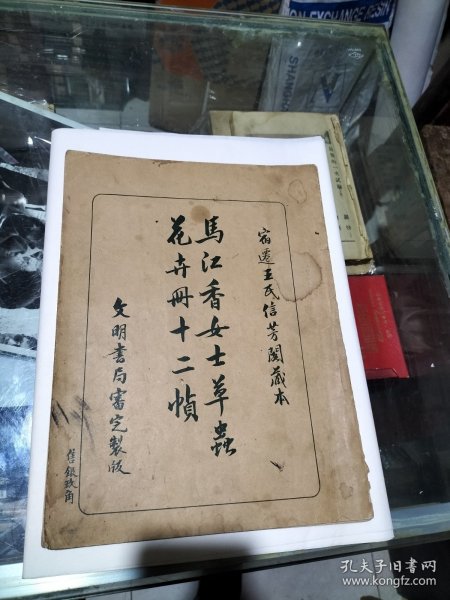 宿遷王氏信芳閣藏本
馬江香女士草蟲
花卉冊十二幀
文明書局審定製版
售銀玖角
ON EXCHANGE RESIN
孔夫子旧书网
www.kongfz.com